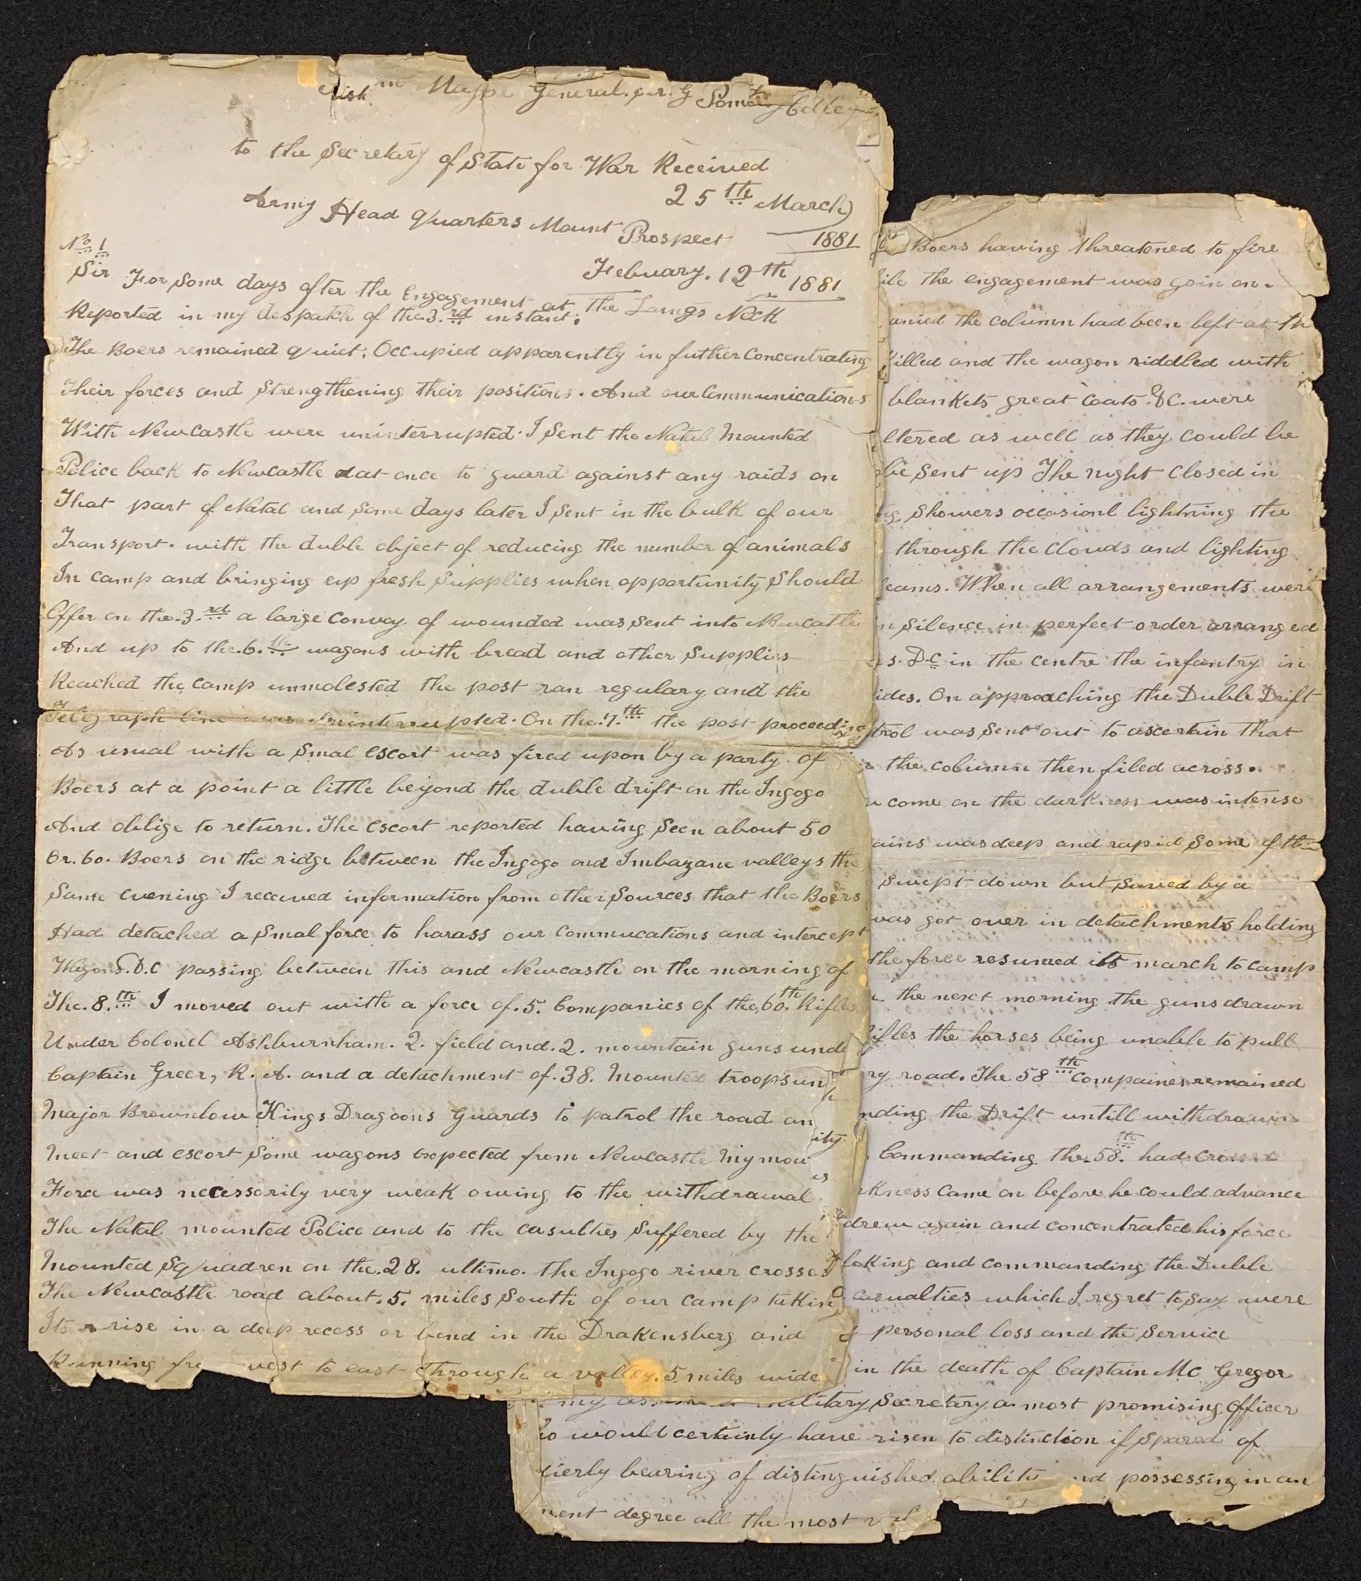 risk in Major General sir G Pomeroy Colley
to the Secretary of State for War Received
25th March
1881
Army Head Quarters Mount Prospect
Febuary. 12th 1881
No. 1
Sir For Some days after the Engagement at The Laings Neck
Reported in my despatch of the 3.rd instant:
The Boers remained quiet: Occupied apparently in futher Concentrating
Their forces and Strengthening their positions. And our Communications
With Newcastle were uninterrupted. I Sent the Natal Mounted
Police back to Newcastle at once to guard against any raids on
That part of Natal and Some days later I Sent in the bulk of our
Transport. with the duble object of reducing the number of animals
In camp and bringing up fresh Supplies when opportunity Should
Offer on the .3.rd a large Convoy of wounded was Sent into Newcastle
And up to the .6.th wagons with bread and other Supplies
Reached the camp unmolested the post ran regulary and the
Telegraph line was uninterrupted. On the .7.th the post proceeding
As usual with a Smal escort was fired upon by a party of
Boers at a point a little beyond the duble drift on the Ingogo
And oblige to return. The escort reported having Seen about 50
Or. 60. Boers on the ridge between the Ingogo and Imbazane valleys the
Same evening I received information from other Sources that the Boers
Had detached a Smal force to harass our Commucations and intercept
Wagons &.C passing between this and Newcastle on the morning of
The .8.th I moved out with a force of .5. Companies of the 60.th Rifles
Under Colonel Ashburnham. 2. field and .2. mountain guns unde
Captain Greer, R. A. and a detachment of .38. Mounted troops un
Major Brownlow Kings Dragoons Guards to patrol the road an
Meet and escort Some wagons expected from Newcastle My mou
Force was necessarily very weak owing to the withdrawal
The Natal mounted Police and to the casulties Suffered by the
Mounted Squadren on the .28. ultimo. the Ingogo river crosses
The Newcastle road about .5. miles South of our camp takin
Its rise in a deep recess or bend in the Drakensberg and
Running fro west to east through a valley .5 miles wide
Boers having threatened to fire
ile the engagement was goin on.
anied the column had been left at th
killed and the wagon riddled with
blankets great Coats &C. were
ltered as well as they could be
be Sent up The night Closed in
Showers occasionl lightning the
through the Clouds and lighting
eams. When all arrangements were
n Silence in perfect order arranged
s. &c in the centre the infantry in
ides. On approaching the Duble Drift
trol was Sent out to ascertain that
the column then filed across.
come on the darkness was intense
ains was deep and rapid Some of the
Swept down but Saved by a
was got over in detachments holding
the force resumed its march to camp
the next morning the guns drawn
ifles the horses being unable to pull
ry road. The 58th Compaines remained
nding the Drift untill withdrawn
Commanding the .58.th had crossed
rkness came on before he could advance
drew again and concentrated his force
loking and commanding the Duble
casualties which I regret to Say were
personal loss and the Service
in the death of Captain Mc Gregor
my military Secretary a most promising Officer
o would certainly have risen to distinction if Spared of
ierly bearing of distinguished ability nd possessing in an
nent degree all the most